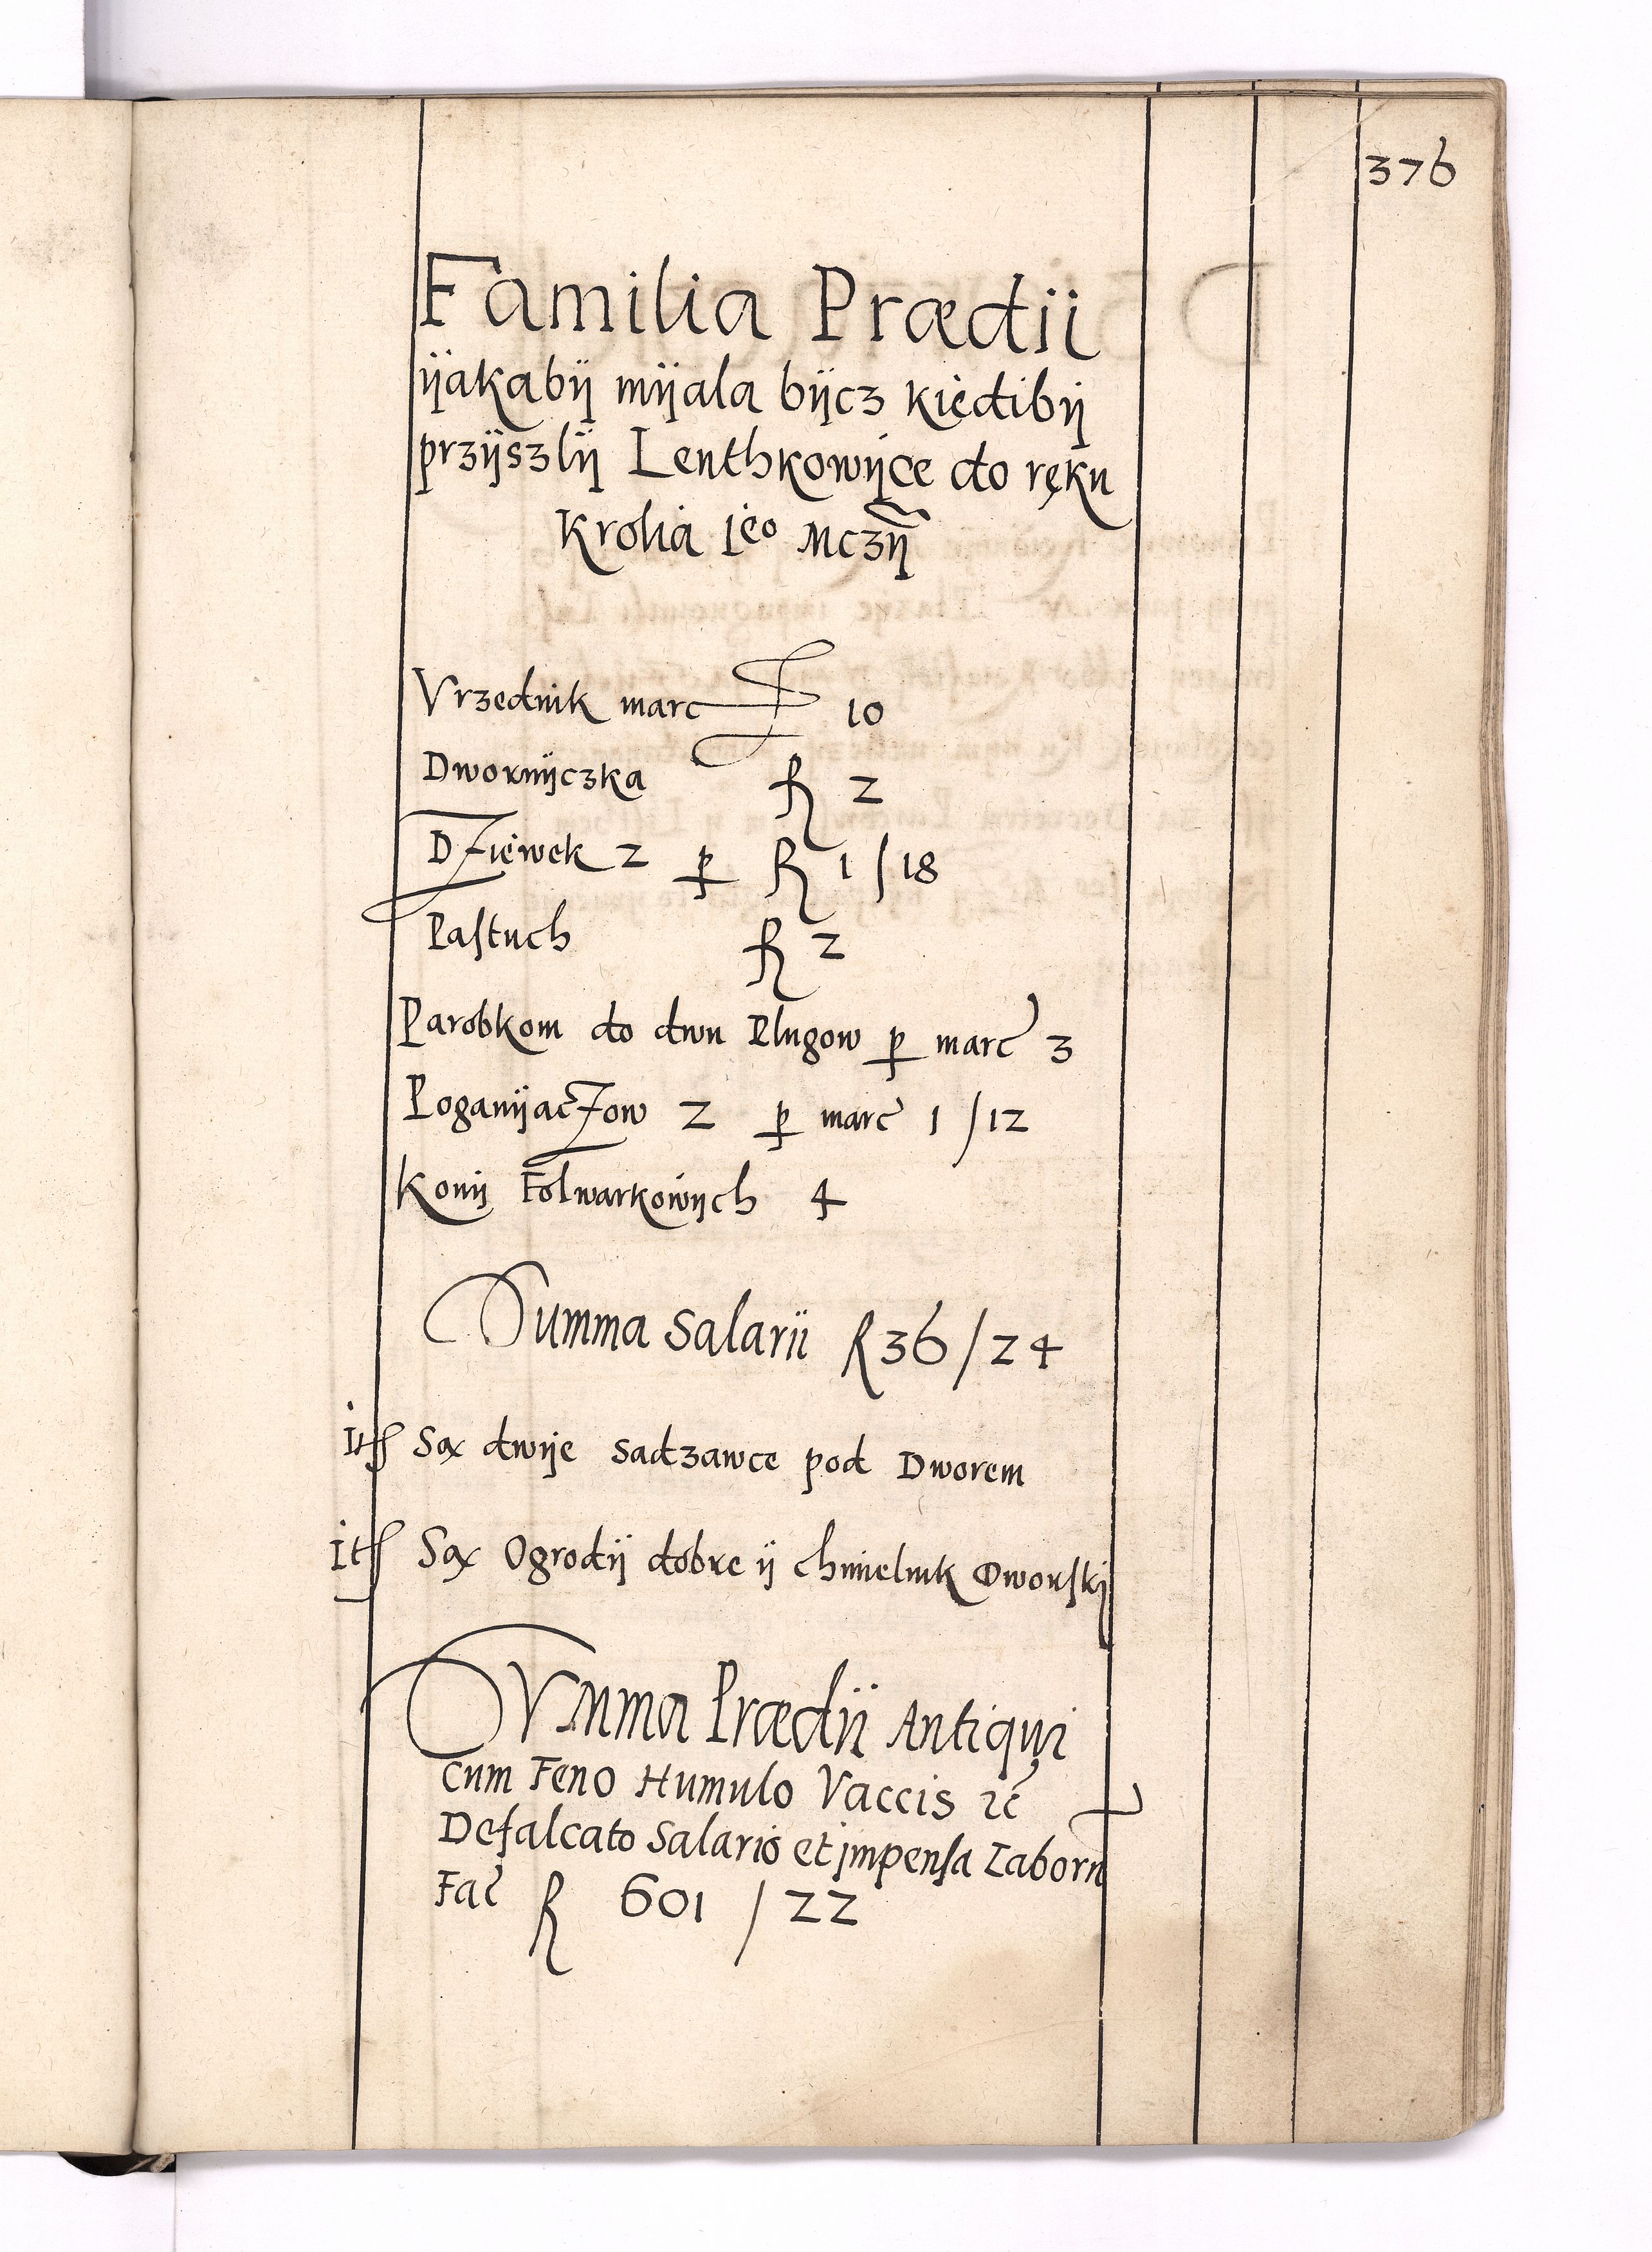 376
Familia Prædii
ijakabÿ mÿala bÿcz kiedibÿ
przÿszlÿ Lenthkowÿce do ręku
Krolia Ieo Mczÿ
Vrzednik marc 10
Dwornÿczka R 2
Dziewek 2 p R 1 / 18
Pastuch R 2
Parobkom do dwu Plugow p marc 3
Poganÿaczow 2 p marc 1 / 12
Konÿ Folwarkowÿch 4
Summa Salarii R 36 / 24
Itē Są dwÿe Sadzawce pod Dworem
Itē Są Ogrodÿ dobre ÿ chmielnik Dworskÿ
SVmma Prædii Antiqui
cum Feno Humulo Vaccis &c
Defalcato Salario et impensa Laborū
Fac R 601 / 22